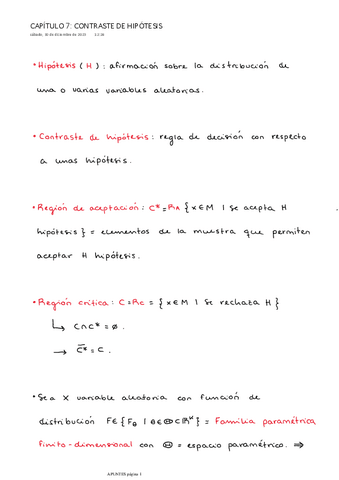 CAPÍTULO 7: CONTRASTE DE HIPÓTESIS
• Hipótesis (H) : afirmación sobre la distribución de
una o varias variables aleatorias.
• Contraste de hipótesis : regla de decisión con respecto
a unas hipótesis.
• Región de aceptación : C* = RA { x ∈ M | se acepta H
hipótesis } = elementos de la muestra que permiten
aceptar H hipótesis.
• Región crítica : C = RC = { x ∈ M | se rechaza H }
↳ C ∩ C* = ∅ .
→ C̅* = C .
• Sea X variable aleatoria con función de
distribución F ∈ { Fθ | θ ∈ Θ ⊂ ℝᴷ } = Familia paramétrica
finito-dimensional con Θ = espacio paramétrico. ⇒
APUNTES página 1